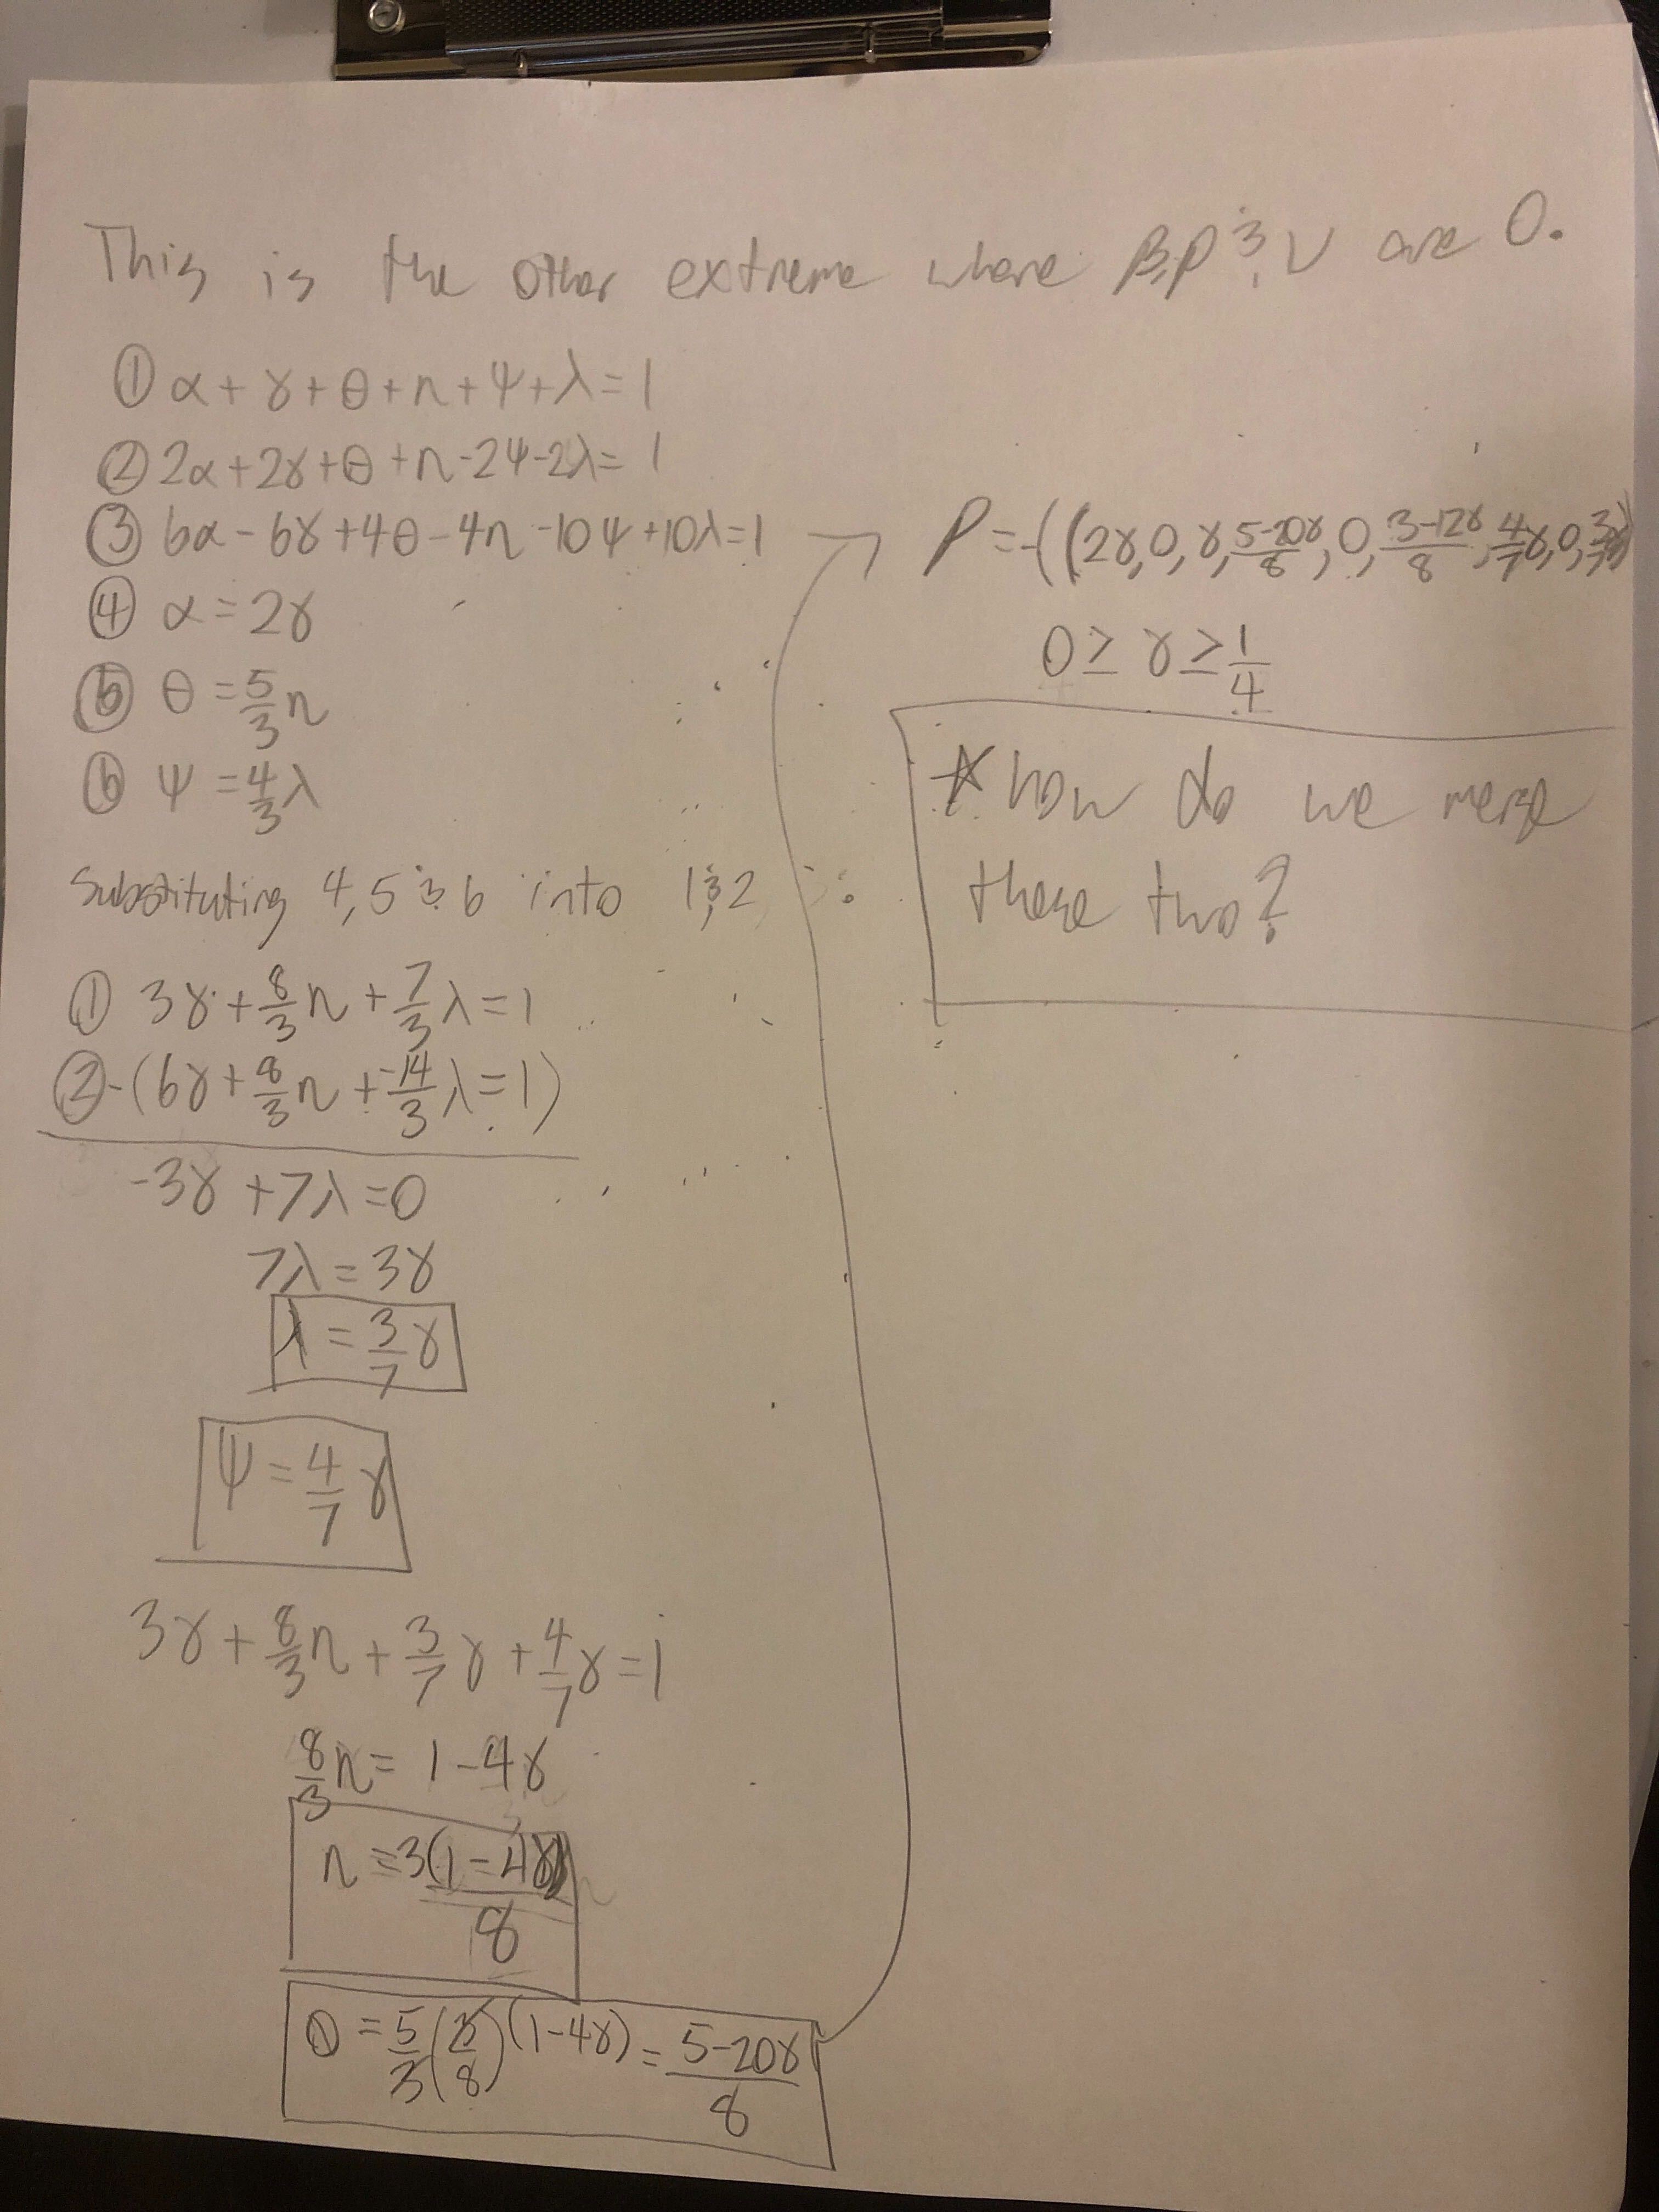 This is the other extreme where β, ρ & ν are 0.
① α + γ + θ + n + ψ + λ = 1
② 2α + 2γ + θ + n - 2ψ - 2λ = 1
③ 6α - 6γ + 4θ - 4n - 10ψ + 10λ = 1
④ α = 2γ
⑤ θ = 5/3 n
⑥ ψ = 4/3 λ
Substituting 4, 5 & 6 into 1 & 2 :
① 3γ + 8/3 n + 7/3 λ = 1
② -(6γ + 8/3 n + -14/3 λ = 1)
-3γ + 7λ = 0
7λ = 3γ
λ = 3/7 γ
ψ = 4/7 γ
3γ + 8/3 n + 3/7 γ + 4/7 γ = 1
8/3 n = 1 - 4γ
n = 3(1 - 4γ)/8
θ = 5/3 (3/8) (1 - 4γ) = (5 - 20γ)/8
P = ((2γ, 0, γ, (5-20γ)/8, 0, (3-12γ)/8, 4/7 γ, 0, 3/7 γ)
0 ≥ γ ≥ 1/4
* How do we merge
these two?